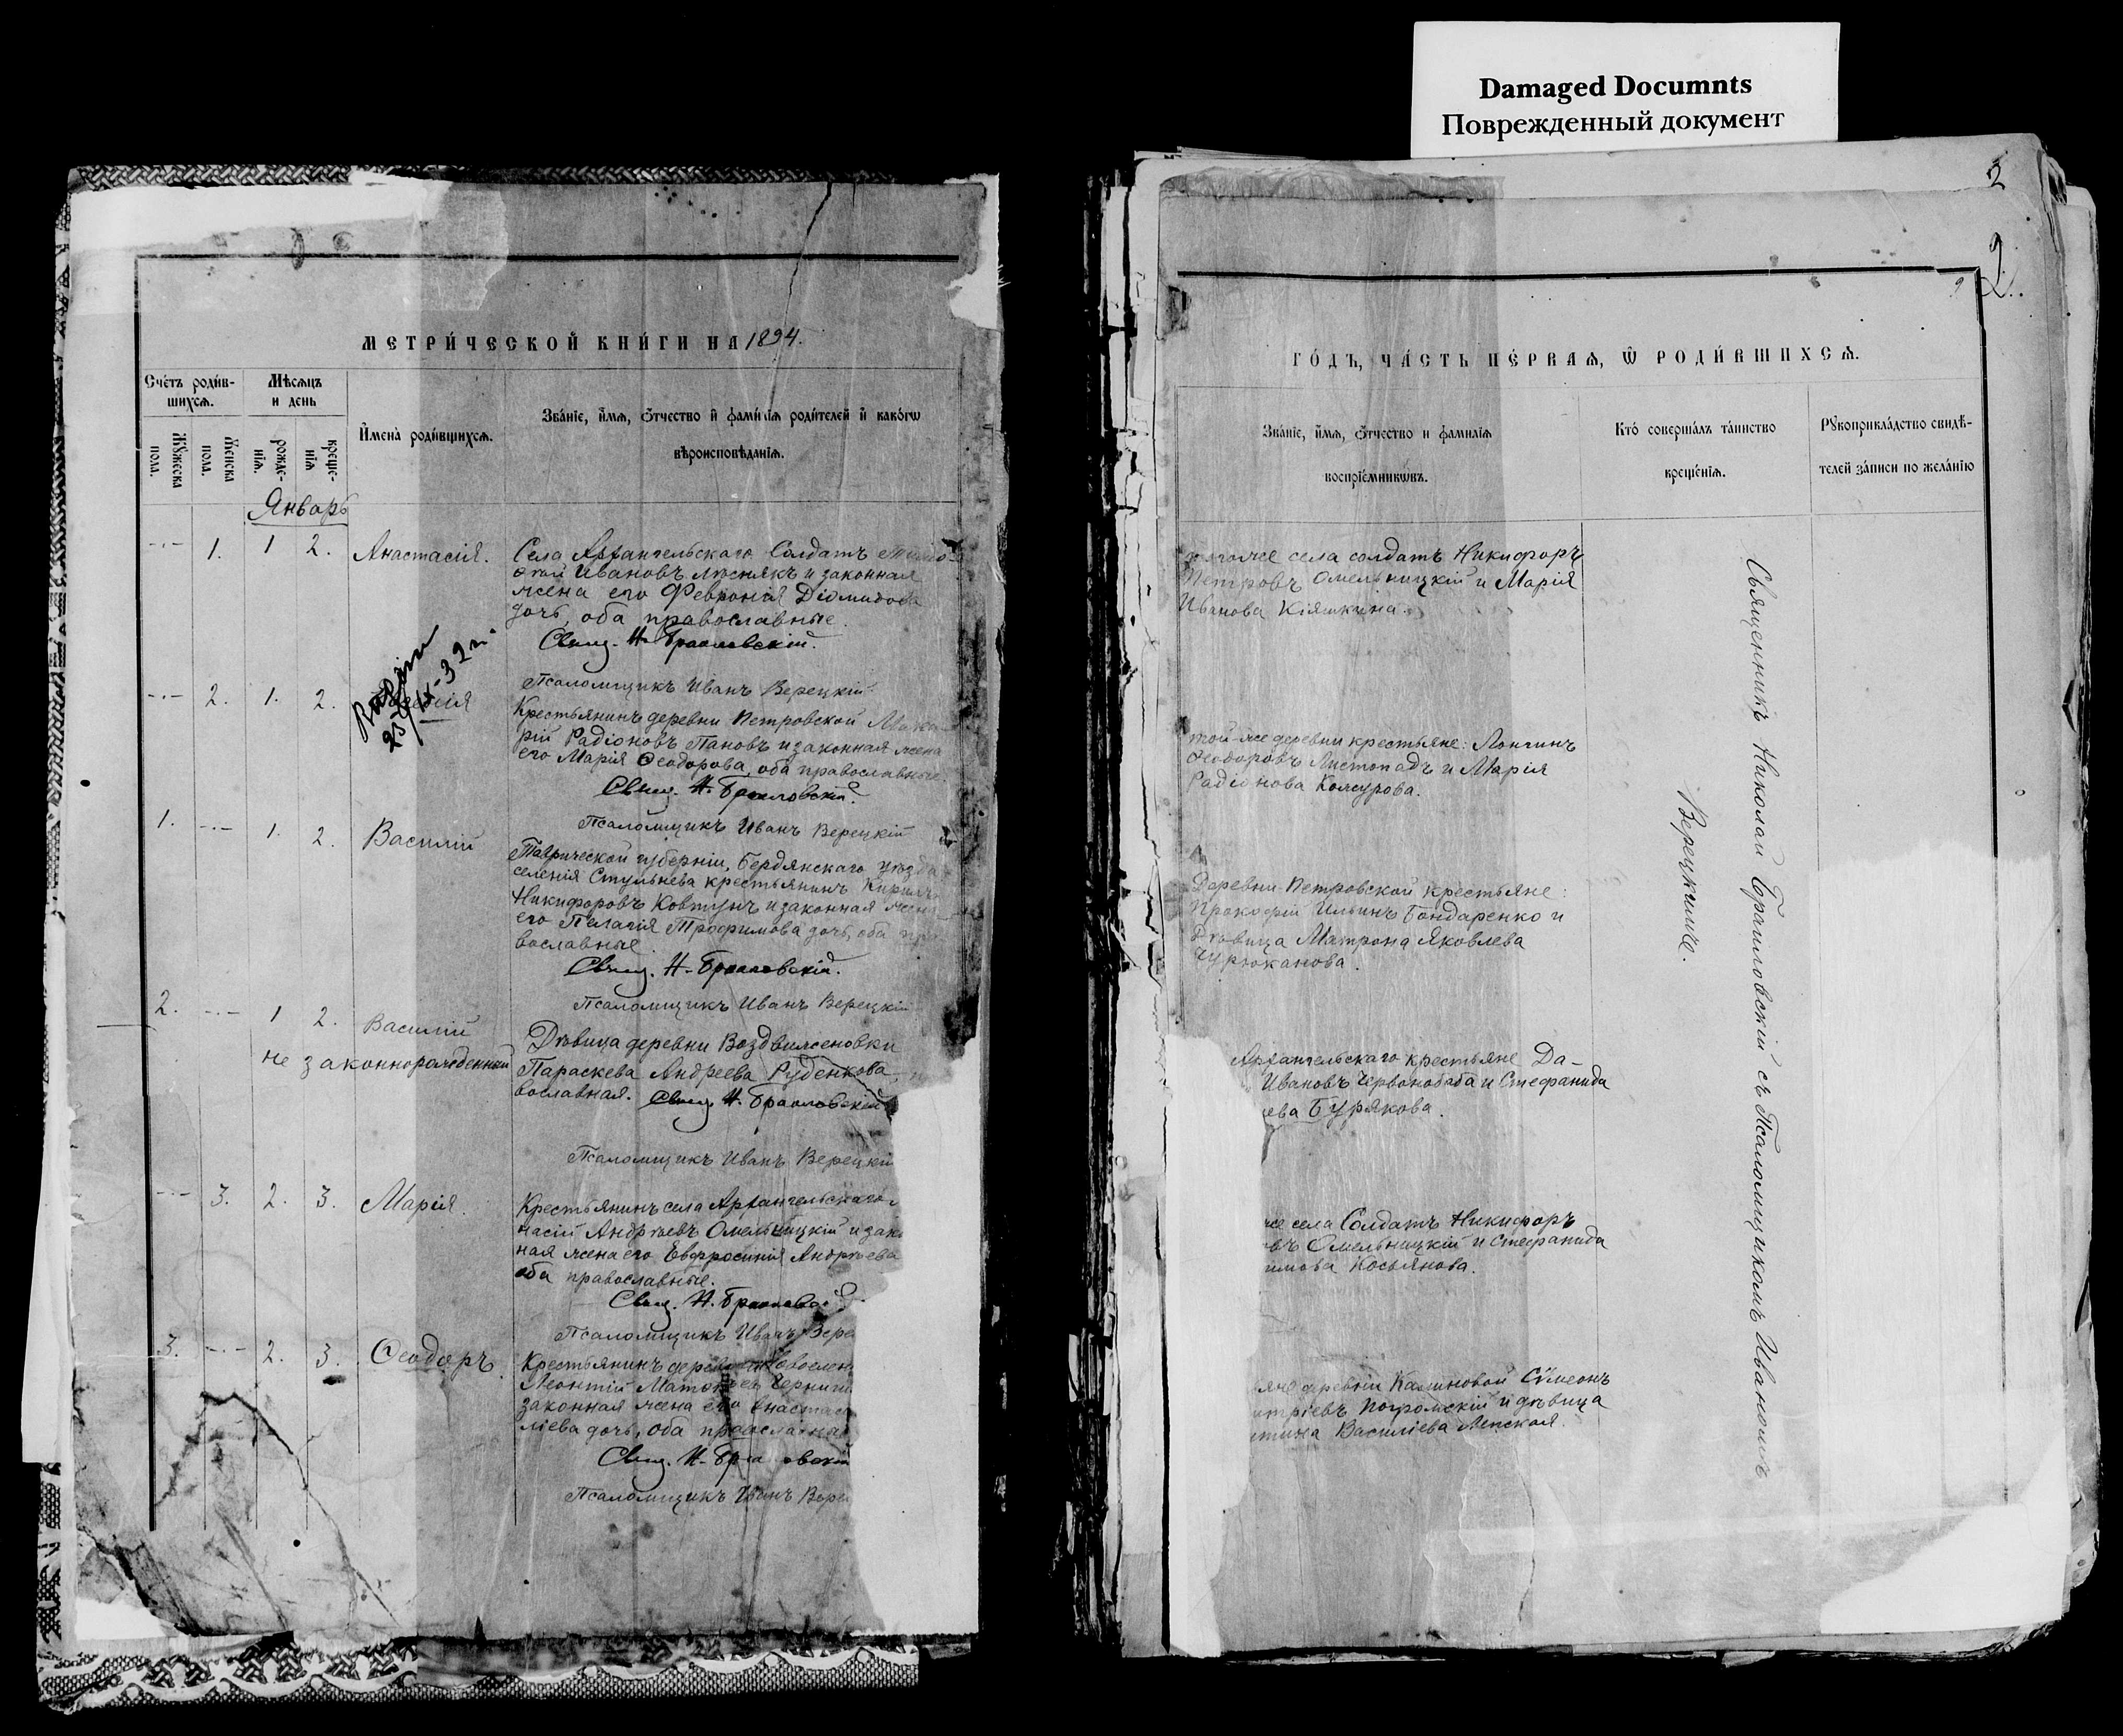 Damaged Documnts
Поврежденный документ
МЕТРИ́ЧЕСКОЙ КНИ́ГИ НА 1894.
Сче́тъ роди́в-
шихсѧ.
Мѣсѧцъ
и день
И҆мена̀ роди́вшихсѧ.
Зва́нїе, и҆́мѧ, ѻ҆́тчество и҆ фами́лїѧ роди́телей и҆ како́гѡ
вѣроисповѣ́данїѧ.
Мꙋ́жеска
пола.
Же́нска
пола.
рожде-
нїѧ.
креще-
нїѧ
Январь
-·- 1. 1 2. Анастасія.
Села Архангельскаго Солдатъ
Ивановъ и законная
жена его Феврония Діомидова
дочь, оба православные.
Свящ. Н. Браиловскій.
Псаломщикъ Иванъ Верецкій
23/IX-32 г.
-·- 2. 1. 2.
Крестьянинъ деревни Петровской
рій Радіоновъ Пановъ и законная жена
его Марія Ѳеодорова, оба православные
Свящ. Н. Браиловскій.
Псаломщикъ Иванъ Верецкій
1. -·- 1. 2. Василій
Таврической губерніи, Бердянскаго уѣзда
селенія Стульнева крестьянинъ Кириллъ
Никифоровъ Ковтунъ и законная жена
его Пелагія Трофимова дочь, оба пра-
вославные.
Свящ. Н. Браиловскій.
Псаломщикъ Иванъ Верецкій
2. -·- 1 2. Василій
не законнорожденный
Дѣвица деревни Воздвиженовки
Параскева Андреева Руденкова,
вославная. Свящ. Н. Браиловскій
Псаломщикъ Иванъ Верецкій
-·- 3. 2. 3. Марія.
Крестьянинъ села Архангельскаго
насій Андреевъ Омельницкій и зако
ная жена его Евфросинія Андреева
оба православные.
Свящ. Н. Браиловскій.
Псаломщикъ Иванъ Вере
3. -·- 2. 3. Ѳеодоръ.
Крестьянинъ
Леонтій
законная жена его Анастас
ліева дочь, оба православна
Свящ. Н. Браиловскій
Псаломщикъ Иванъ Вере
2
9
2.
ГО́ДЪ, ЧА́СТЬ ПЕ́РВАѦ, Ѡ҆ РОДИ́ВШИХСѦ.
Зва́нїе, и҆́мѧ, ѻ҆́тчество и фами́лїѧ
воспрїе́мникѡвъ.
Кто̀ соверша́лъ та́инство
креще́нїѧ.
Рꙋкоприкла́дство свидѣ́-
телей за́писи по жела́нїю
тогоже села солдатъ Никифоръ
Петровъ Омельницкій и Марія
Иванова Кіяшкина.
той-же деревни крестьяне: Лонгинъ
Ѳеодоровъ Листопадъ и Марія
Радіонова Кожурова.
Деревни Петровской крестьяне:
Прокофій Ильинъ Бондаренко и
Дѣвица Матрона Яковлева
Чурюканова.
Архангельскаго крестьяне Да-
Ивановъ Червонобаба и Стефанида
ева Бурякова.
же села Солдатъ Никифоръ
овъ Омельницкій и Стефанида
имова Косьянова.
яне деревни Калиновой Сѵмеонъ
итріевъ Погромскій и дѣвица
Василіева Лепская.
Священникъ Николай Браиловскій съ Псаломщикомъ Иваномъ
Верецкимъ.